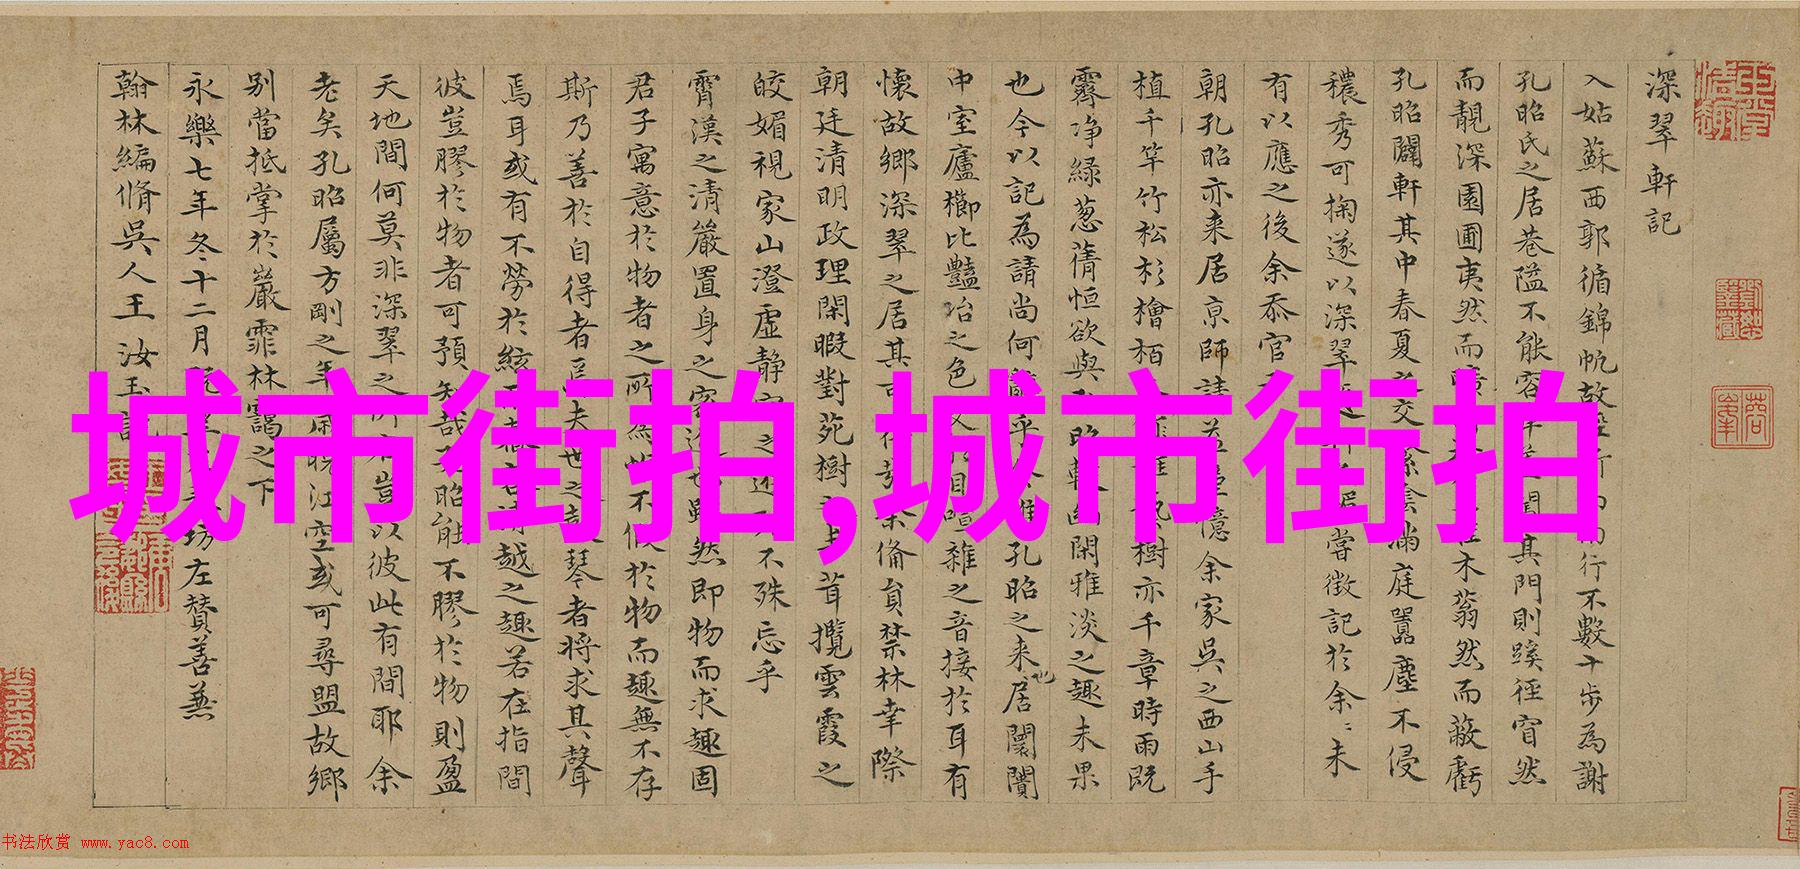 深翠軒記
入姑蘇西郭循錦帆故
行不數十步為謝
孔昭氏之居巷隘不能容
其門則蹊徑窅然
而靚深園圃夷然而
木蓊然而蔽虧
孔昭闢軒其中春夏之交
滿庭囂塵不侵
穠秀可掬遂以深翠
嘗徵記於余余未
有以應之後余忝官
朝孔昭亦来居京師請益
憶余家吳之西山手
植千竿竹松杉檜栢
樹亦千章時雨既
霽净緑葱蒨恒欲與
幽閑雅淡之趣未果
也今以記為請尚何
孔昭之来居也闤闠
中室廬櫛比豔冶之色
雜之音接於耳有
懷故鄉深翠之居其可
余備員禁林幸際
朝廷清明政理閑暇對苑樹之
茸攬雲霞之
皎媚視家山澄虛静
不殊忘乎
霄漢之清嚴置身之
雖然即物而求趣固
君子寓意於物者之所為
不假於物而趣無不存
斯乃善於自得者
夫世之
琴者将求其聲
焉耳或有不勞於絃
越之趣若在指間
彼豈膠於物者可預知哉
昭能不膠於物則盈
天地間何莫非深翠之
豈以彼此有間耶余
老矣孔昭屬方剛之年
江空或可尋盟故鄉
别當抵掌於巖霏林靄之下
永樂七年冬十二月
坊左贊善兼
翰林編脩吳人王汝玉記
城市街拍,城市街拍
书法欣赏 www.yac8.com